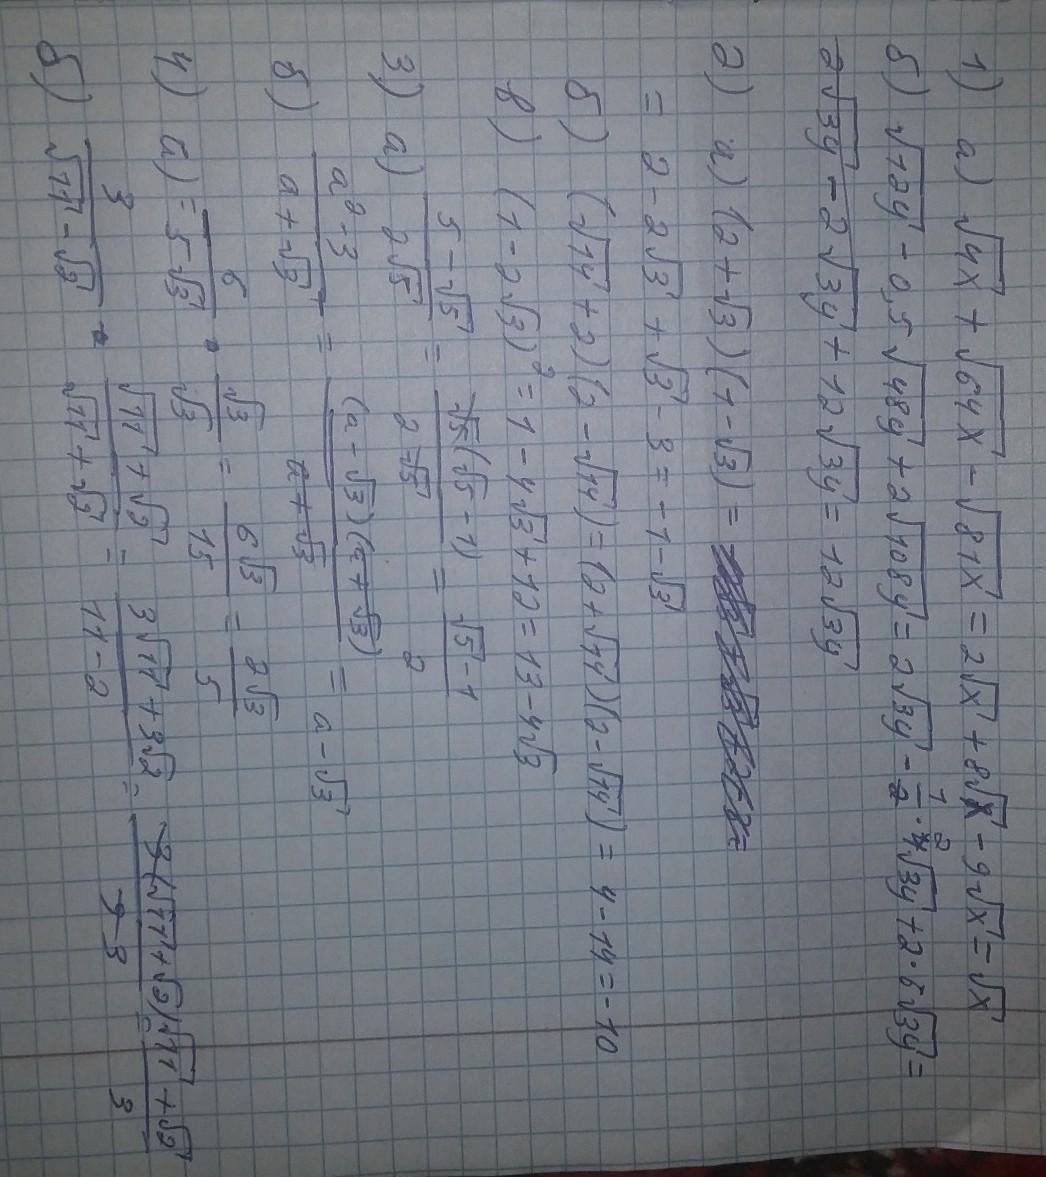 1) а) √4x + √64x - √81x = 2√x + 8√x - 9√x = √x
б) √12y - 0,5√48y + 2√108y = 2√3y - 1/2 · 4√3y + 2·6√3y =
2√3y - 2√3y + 12√3y = 12√3y
2) а) (2+√3)(1-√3) =
= 2 - 2√3 + √3 - 3 = -1-√3
б) (√14 + 2)(2 - √14) = (2+√14)(2-√14) = 4-14 = -10
в) (1-2√3)² = 1 - 4√3 + 12 = 13 - 4√3
3) а) (5-√5)/(2√5) = (√5(√5-1))/(2√5) = (√5-1)/2
б) (a²-3)/(a+√3) = ((a-√3)(a+√3))/(a+√3) = a-√3
4) а) = 6/(5√3) · √3/√3 = 6√3/15 = 2√3/5
б) 3/(√11-√2) · (√11+√2)/(√11+√2) = (3√11+3√2)/(11-2) = (3(√11+√2))/(9 3) = (√11+√2)/3